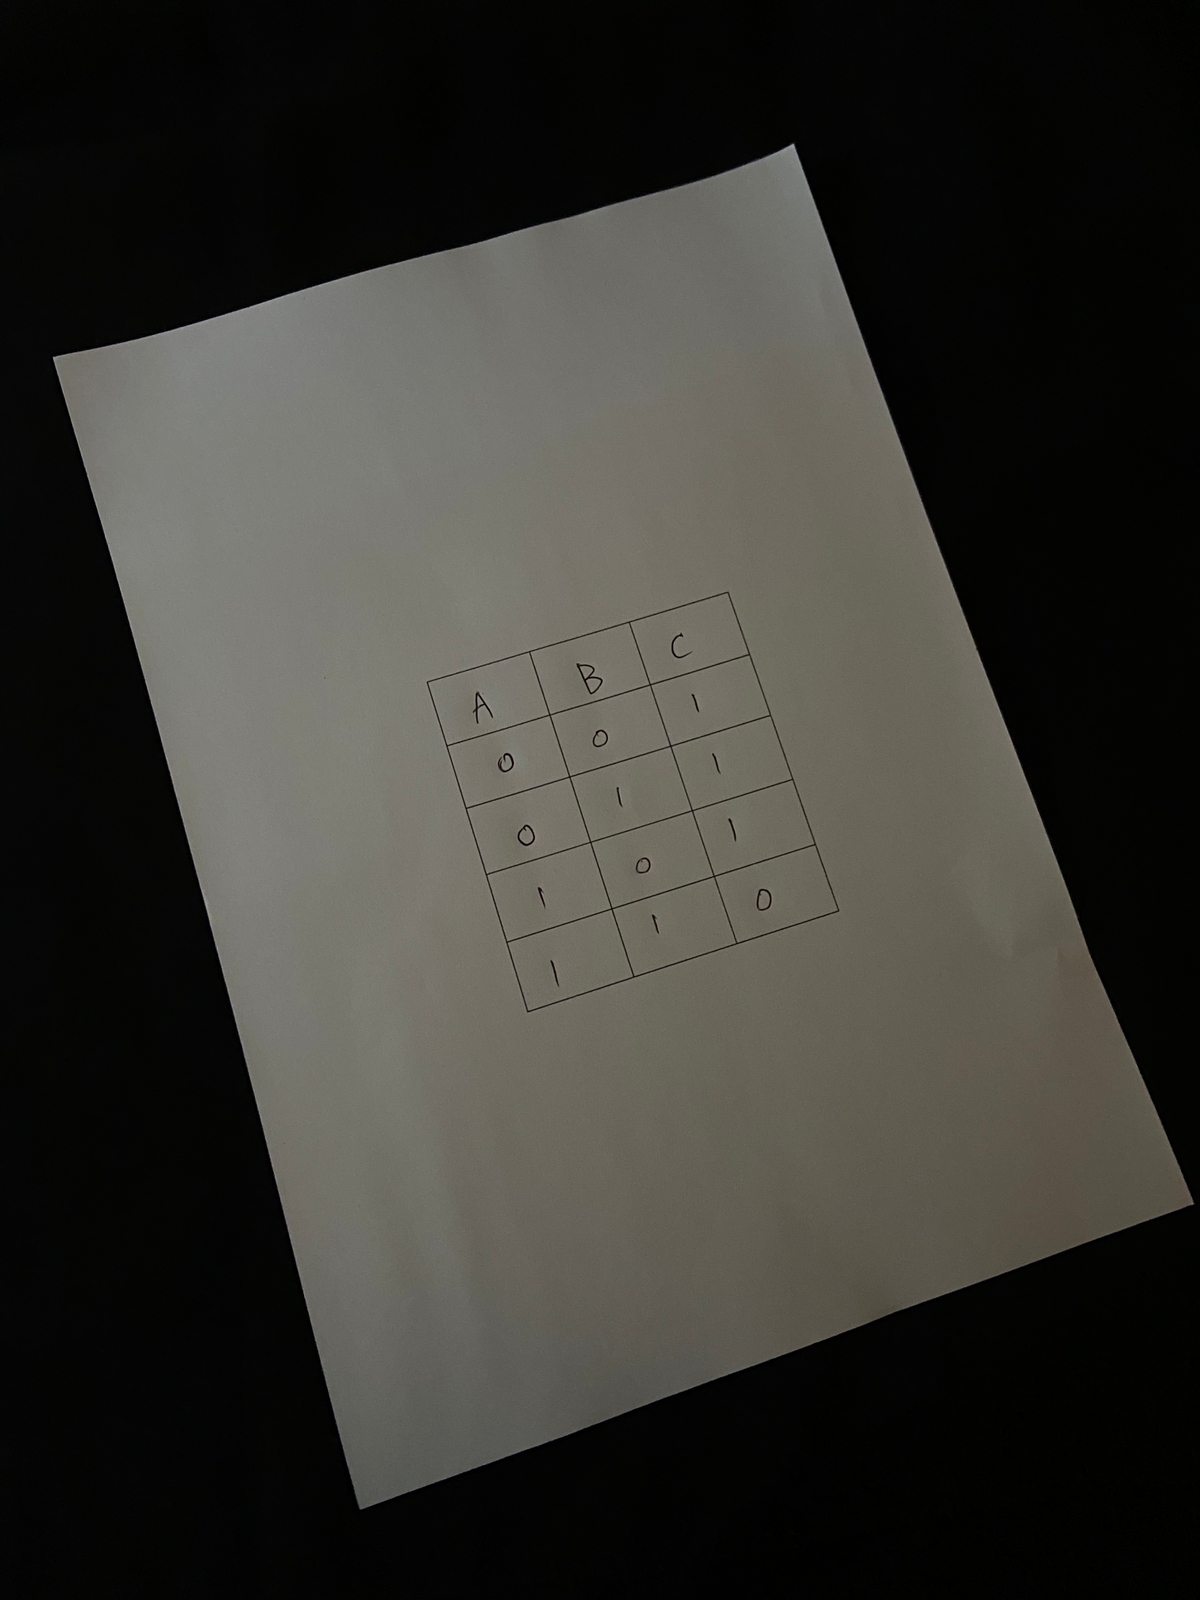 A B C
0 0 1
0 1 1
1 0 1
1 1 0